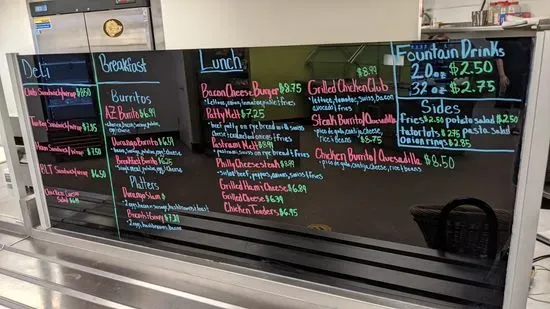 Deli
Club Sandwich/wrap $8.50
Turkey Sandwich/wrap $7.95
Ham Sandwich/wrap $7.50
BLT Sandwich/wrap $6.50
Chicken Caesar
Salad
Breakfast
Burritos
AZ Burrito $6.99
Durango Burrito $6.59
Breakfast Burrito $6.25
Platters
Durango Slam
Biscuit & Gravy $7.29
Lunch
Bacon Cheese Burger $8.75
• lettuce, onion, tomato, pickles & fries
Patty Melt $7.25
• beef patty on rye bread with swiss
cheese, caramelized onions & fries
Pastrami Melt $8.99
• pastrami, swiss on rye bread & fries
Philly Cheese steak $8.99
• sliced beef, peppers, onion, swiss & fries
Grilled Ham & Cheese $6.89
Grilled Cheese $6.39
Chicken Tenders $6.95
$8.99
Grilled Chicken Club
• lettuce, tomato, swiss, bacon
avocado & fries
Steak Burrito/Quesadilla
• pico de gallo, cantija, cheese,
rice & beans $8.75
Chicken Burrito/Quesadilla $8.50
• pico de gallo, cantija, cheese, rice & beans
Fountain Drinks
20oz $2.50
32oz $2.75
Sides
fries $2.50 potato salad $2.50
tatortots $2.75 pasta salad
onion rings $2.85